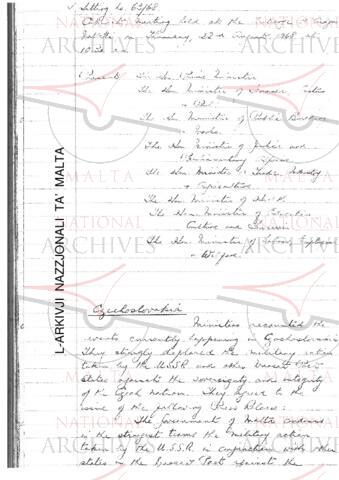 Sitting No. 62/68
Cabinet meeting held at the
on Thursday, 22nd August, 1968 at
Present: The Hon. Prime Minister
The Hon. Minister of Finance, Customs
+ Port
The Hon. Minister of Public Building
+ Works
The Hon. Minister of Justice and
Parliamentary Affairs
The Hon. Minister of Trade, Industry
+ Agriculture
The Hon. Minister of Health
The Hon. Minister of Education,
Culture and Tourism
The Hon. Minister of Labour, Employment
+ Welfare.
L-ARKIVJI NAZZJONALI TA' MALTA
NATIONAL
ARCHIVES
Czechoslovakia
Ministers reconsidered the
events currently happening in Czechoslovakia.
They strongly deplored the military action
taken by the U.S.S.R. and other Warsaw Pact
States against the sovereignty and integrity
of the Czech nation. They agreed to the
issue of the following Press Release:
The Government of Malta condemns
in the strongest terms the military action
taken by the U.S.S.R. in conjunction with other
states in the Warsaw Pact against the